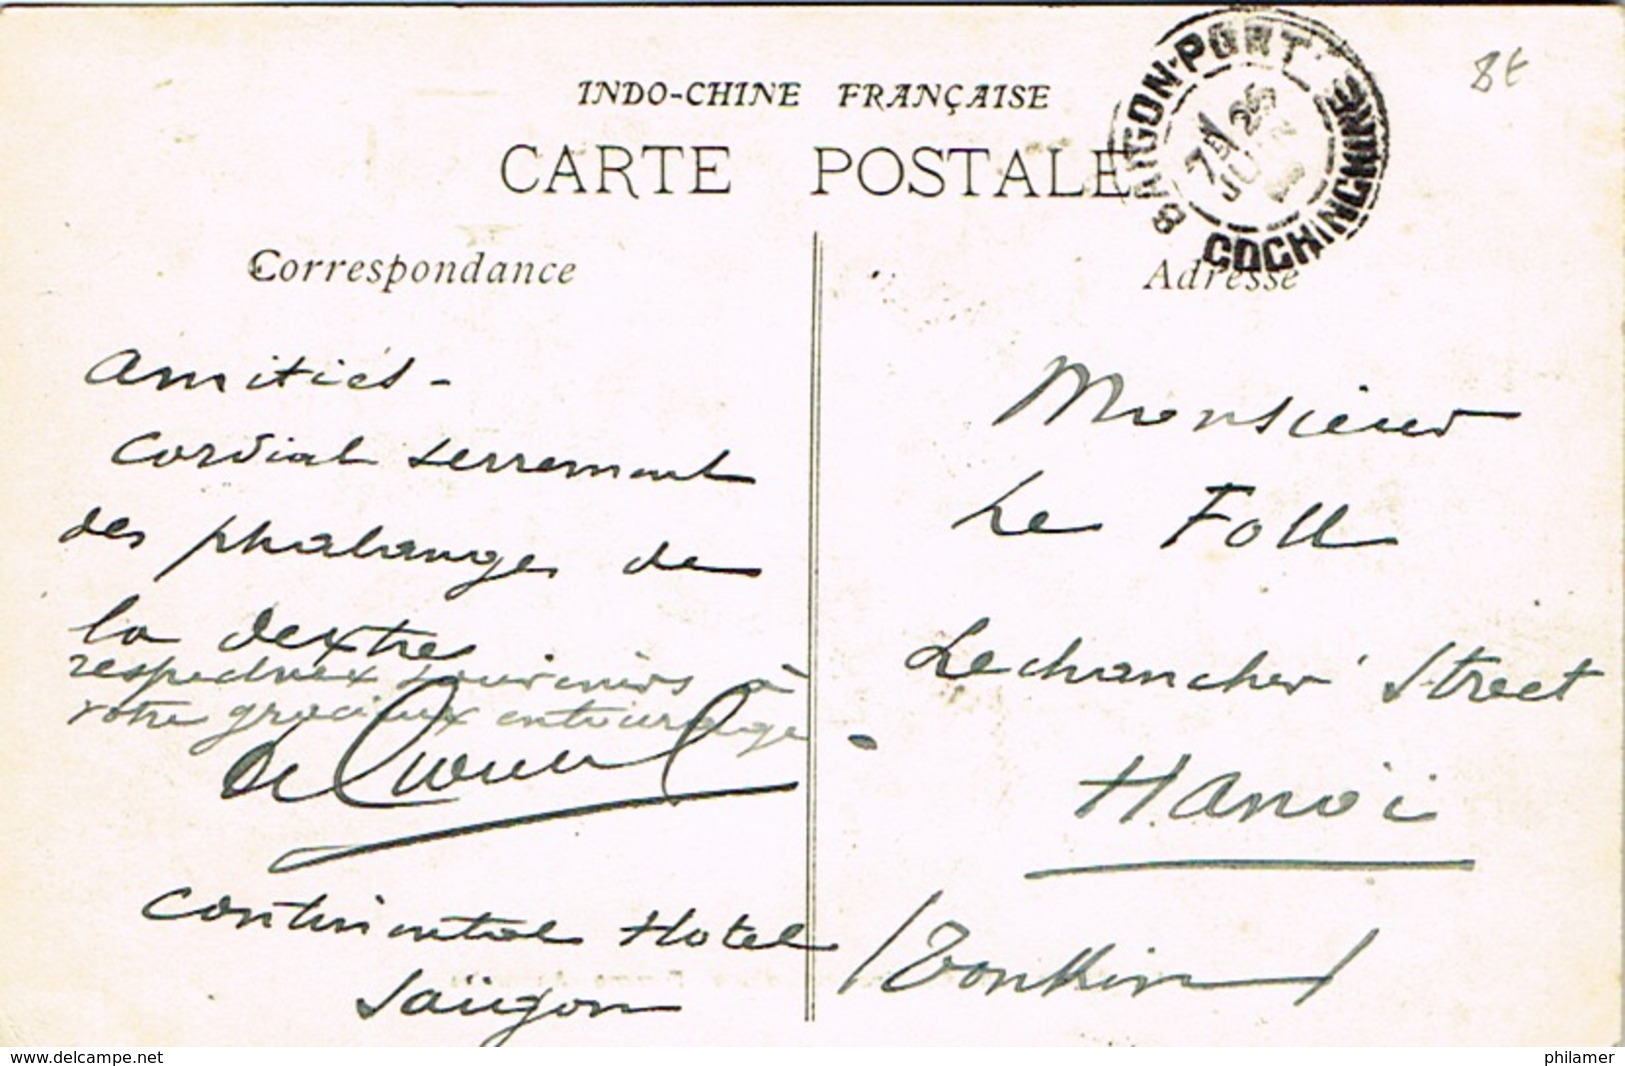 INDO-CHINE FRANÇAISE
CARTE POSTALE
Correspondance
Adresse
SAIGON-PORT
COCHINCHINE
7 25
8t
Amitiés -
Cordial serrement
des phalanges de
la dextre
respectueux souvenirs à
votre gracieux entourage
Continental Hotel
Saïgon
Monsieur
Le Foll
Lechancher Street
Hanoï
(Tonkin)
www.delcampe.net
philamer